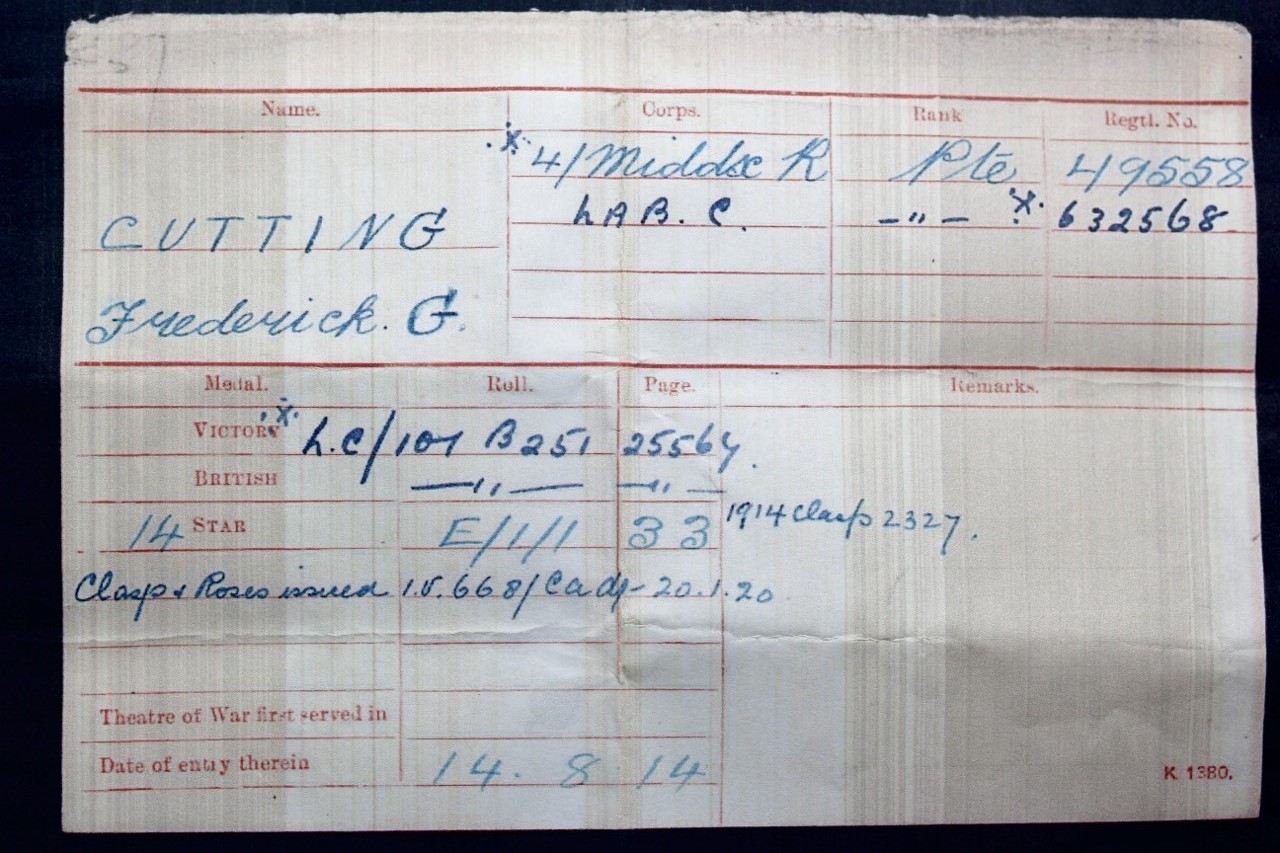 Name. Corps. Rank Regtl. No.
4/Middx R Pte 49558
LAB. C. -"- 632568
CUTTING
Frederick. G.
Medal. Roll. Page. Remarks.
VICTORY L.C/101 B251 25564.
BRITISH —"— —"—
14 STAR E/1/1 33 1914 Clasp 2327.
Clasp & Roses issued I.V. 668/Cadj- 20.1.20
Theatre of War first served in
Date of entry therein 14. 8 14
K 1380.